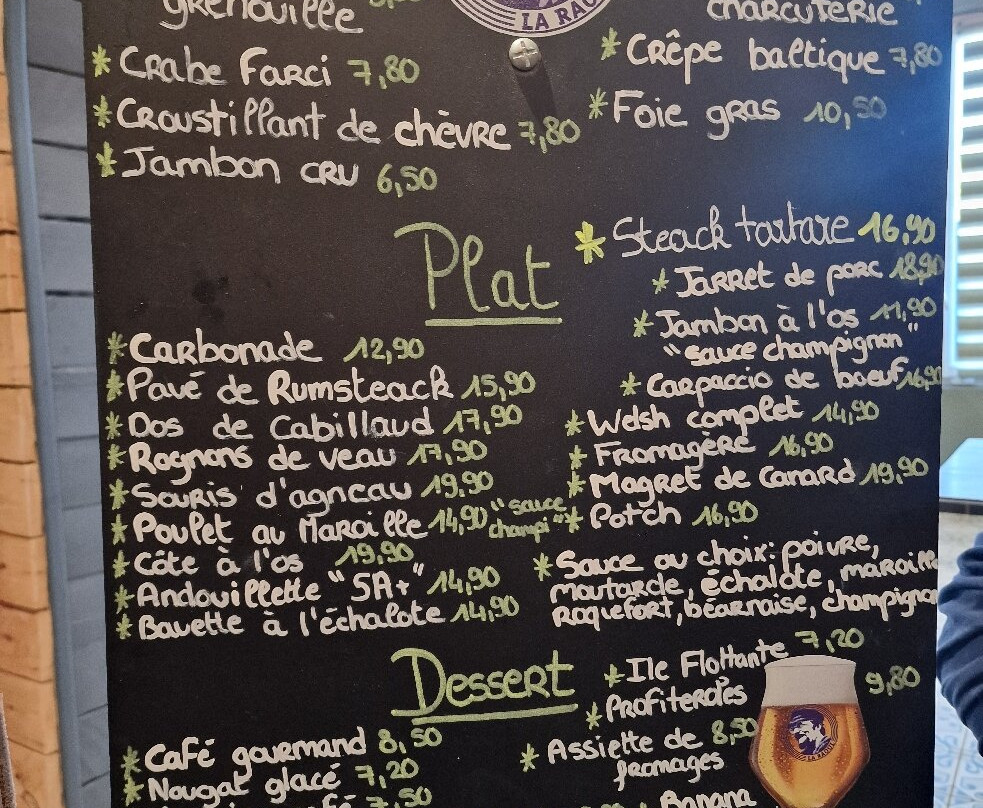 grenouille
LA RAOUL
charcuterie
* Crabe Farci 7,80
* Croustillant de chèvre 7,80
* Jambon cru 6,50
* Crêpe baltique 7,80
* Foie gras 10,50
Plat
* Carbonade 12,90
* Pavé de Rumsteack 15,90
* Dos de Cabillaud 17,90
* Rognons de veau 17,90
* Souris d'agneau 19,90
* Poulet au Maroille 14,90 "sauce
champi"
* Côte à l'os 19,90
* Andouillette "5A+" 14,90
* Bavette à l'échalote 14,90
* Steack tartare 16,90
* Jarret de porc 18,90
* Jambon à l'os 11,90
"sauce champignon"
* Carpaccio de boeuf 16,90
* Welsh complet 14,90
* Fromagère 16,90
* Magret de Canard 19,90
* Potch 16,90
* Sauce au choix: poivre,
moutarde, échalote, maroille
Roquefort, béarnaise, champignon
Dessert
* Café gourmand 8,50
* Nougat glacé 7,20
7,50
* Ile Flottante 7,20
* Profiteroles 9,80
* Assiette de 8,50
fromages
Banana